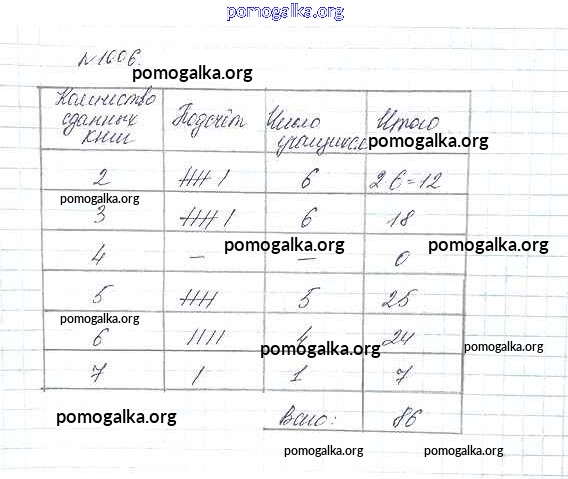 pomogalka.org
№1006.
pomogalka.org
Количество сданных книг Подсчёт Число учащихся Итого
pomogalka.org
2 IIII I 6 2·6=12
pomogalka.org
3 IIII I 6 18
pomogalka.org pomogalka.org
4 – – 0
5 IIII 5 25
pomogalka.org
6 IIII 4 24
pomogalka.org pomogalka.org
7 I 1 7
pomogalka.org
Всего: 86
pomogalka.org pomogalka.org